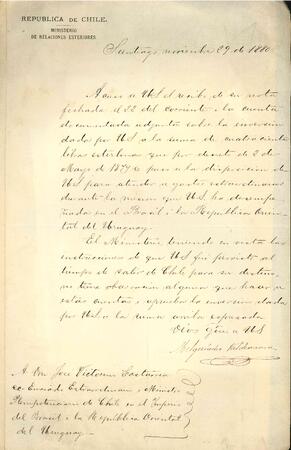 REPUBLICA DE CHILE.
MINISTERIO
DE RELACIONES ESTERIORES
Santiago, noviembre 29 de 1880.
Acuso a US el recibo de su nota
fechada el 22 del corriente i la cuenta
documentada adjunta sobre la inversion
dada por US a la suma de cuatrocientas
libras esterlinas que por decreto de 2 de
Mayo de 1879 se puso a la disposicion de
US para atender a gastos estraordinarios
durante la mision que US ha desem-
peñado en el Brasil i la República Orien-
tal del Uruguay.
El Ministerio teniendo en vista las
instrucciones de que US fué provisto al
tiempo de salir de Chile para su destino,
no tiene observacion alguna que hacer a
estas cuentas i aprueba la inversion dada
por US a la suma arriba espresada.
Dios gue a US
Melquiades Valderrama
A Don José Victorino Lastarria
ex-Enviado Estraordinario i Ministro
Plenipotenciario de Chile en el Imperio
del Brasil i la República Oriental
del Uruguay